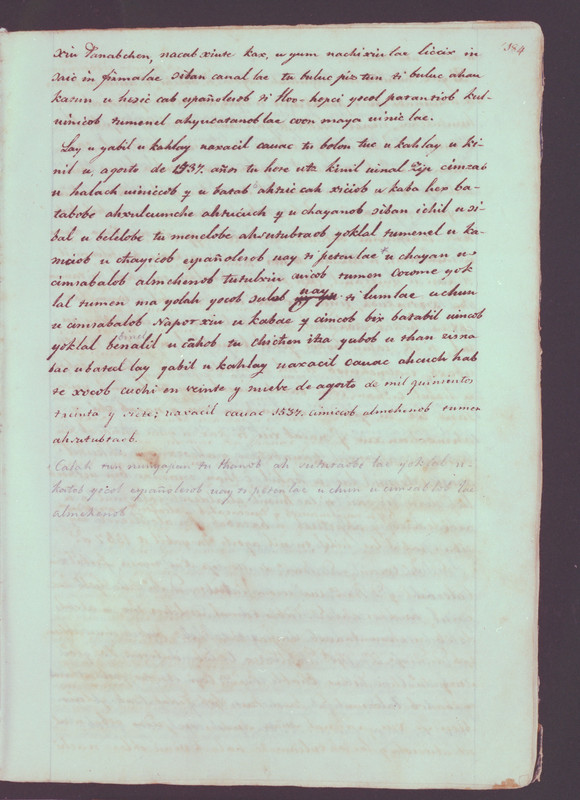 184
xiu Panabchen, nacab xiute kax, u yum nachixiu lae liccix in
saic in firmalae siban canal lae tu buluc pis tun ti buluc ahau
katun u hesic cab españolesob ti Hoo-hopci yocol patan tiob kul-
uinicob tumenel ahyucatanoblae coon maya uiniclae.
Lay u yabil u kahlay naxacil cauac tu bolon tuc u kahlay u ki-
nil u, agosto de 1537. años tu hore utz kinil uinal Zip cimzab
u halach uinicob y u batab ahtzic cah xiciob u kaba hex ba-
tabobe ahxulcumche ahtucuch y u chayanob siban ichil u si-
bal u belelobe tu menelobe ahsutubtaob yoklal tumenel u ka-
niciob u thayicob españolesob uay ti petenlae u chayan u
cimsabalob almehenob tutulxiu uicob tumen cocome yok
lal tumen ma yolah yocob sulob ti lumlae u chun
u cimsabalob Napot xiu u kabae y cimcob bix batabil uincob
yoklal benalil u cahob tu chichen itza yubob u than
lae u batab lay yabil u kahlay naxacil cauac ahcuch hab
te xocob cuchi en veinte y nuebe de agosto de mil quinientos
treinta y siete; naxacil cauac 1537. cimicob almehenob tumen
ahsutubtaob.
tun tu thanob ah sutubtaobe lae yoklal u-
katob yocol españolesob uay ti petenlae u chun u cimsabalob lae
almehenob